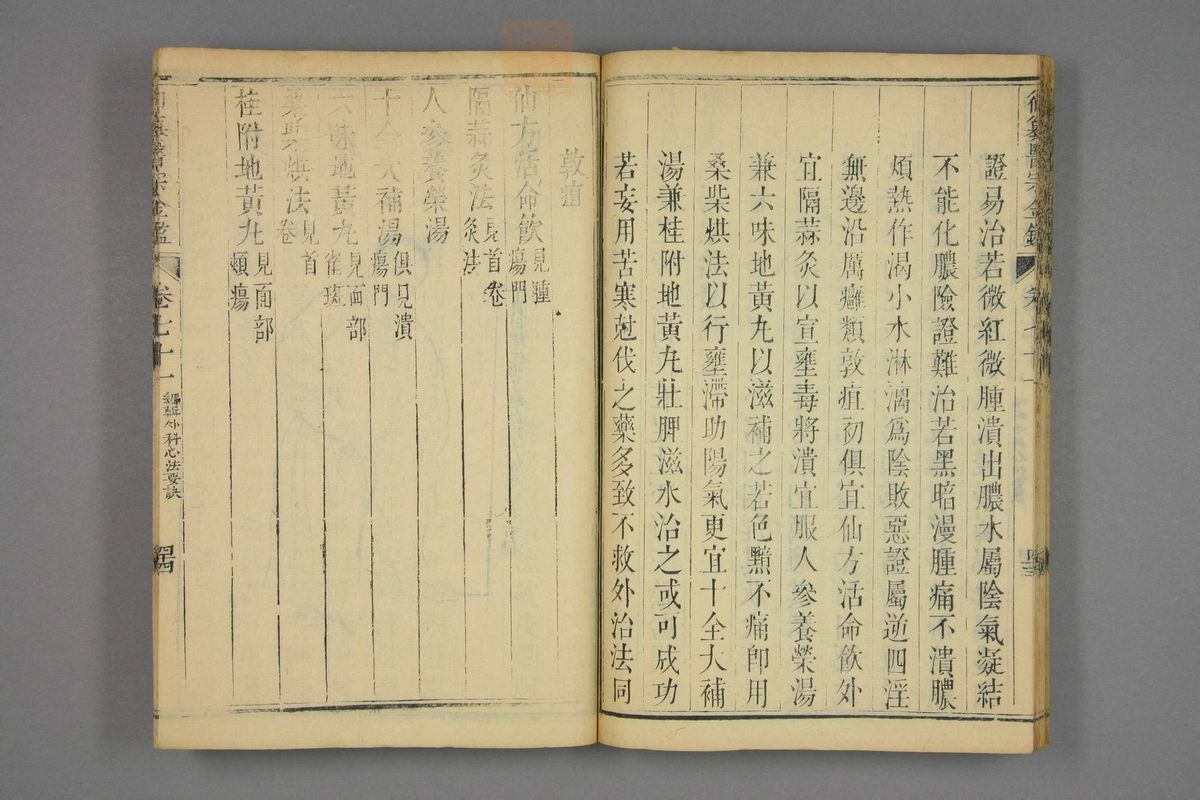 御纂醫宗金鑑
卷七十一
證易治若微紅微腫潰出膿水屬陰氣凝結
不能化膿險證難治若黑暗漫腫痛不潰膿
煩熱作渴小水淋漓為陰敗惡證屬逆四淫
無邊沿厲癰類敦疽初俱宜仙方活命飲外
宜隔蒜灸以宣壅毒將潰宜服人參養榮湯
兼六味地黃丸以滋補之若色黯不痛即用
桑柴烘法以行壅滯助陽氣更宜十全大補
湯兼桂附地黃丸壯脾滋水治之或可成功
若妄用苦寒尅伐之藥多致不救外治法同
敦疽
仙方活命飲見腫瘍門
隔蒜灸法見首卷灸法
人參養榮湯
十全大補湯俱見潰瘍門
六味地黃丸見面部雀斑
桑柴烘法見首卷
桂附地黃丸見面部頰瘍
御纂醫宗金鑑
卷七十一
編輯外科心法要訣